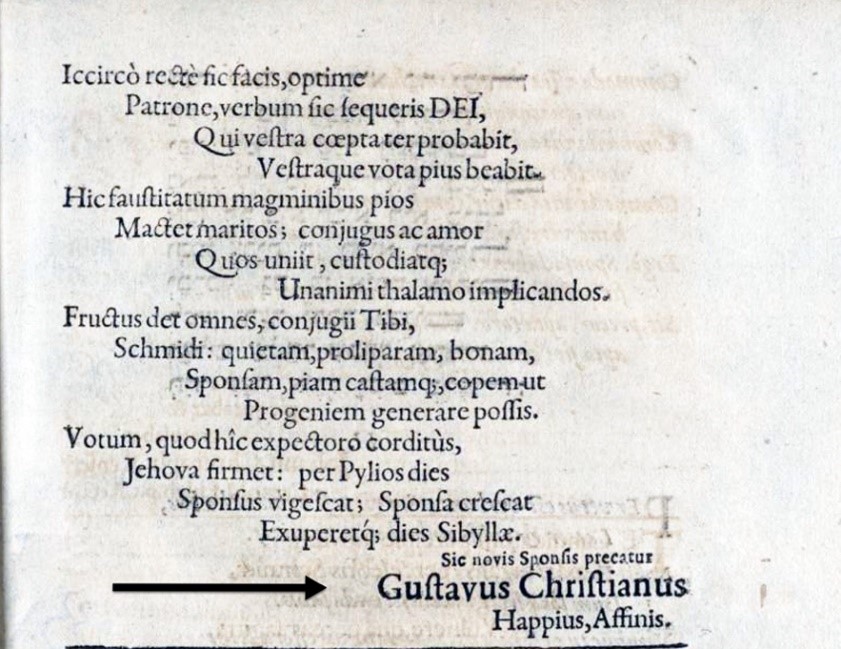 Iccircò rectè sic facis, optime
Patrone, verbum sic sequeris DEI,
Qui vestra cœpta ter probabit,
Vestraque vota pius beabit.
Hic faustitatum magminibus pios
Mactet maritos; conjugus ac amor
Quos uniit, custodiatq;
Unanimi thalamo implicandos.
Fructus det omnes, conjugii Tibi,
Schmidi: quietam, proliparam, bonam,
Sponsam, piam castamq;, copem ut
Progeniem generare possis.
Votum, quod hîc expectoro corditùs,
Jehova firmet: per Pylios dies
Sponsus vigescat; Sponsa crescat
Exuperetq́; dies Sibyllæ.
Sic novis Sponsis precatur
Gustavus Christianus
Happius, Affinis.